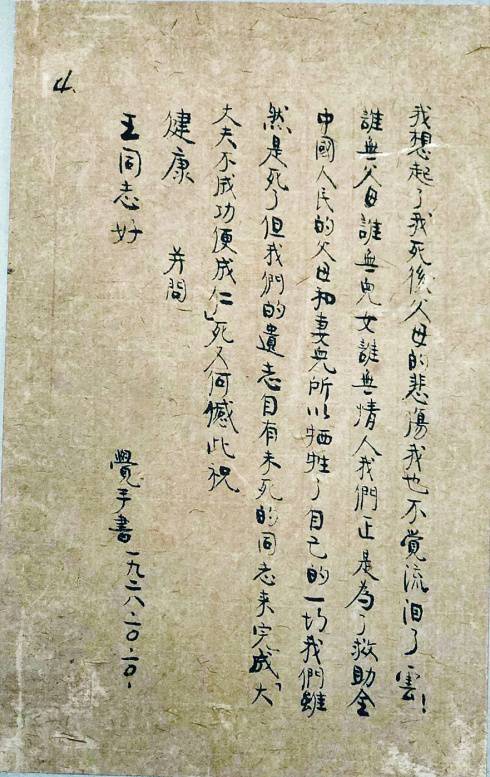 4.
我想起了我死後父母的悲傷我也不覺流泪了雲！
誰無父母誰無兒女誰無情人我們正是為了救助全
中國人民的父母和妻兒所以牺牲了自己的一切我們雖
然是死了但我們的遺志自有未死的同志来完成「大
丈夫不成功便成仁」死又何憾此祝
健康 并問
王同志好
覺手書一九二八.一〇.一〇.